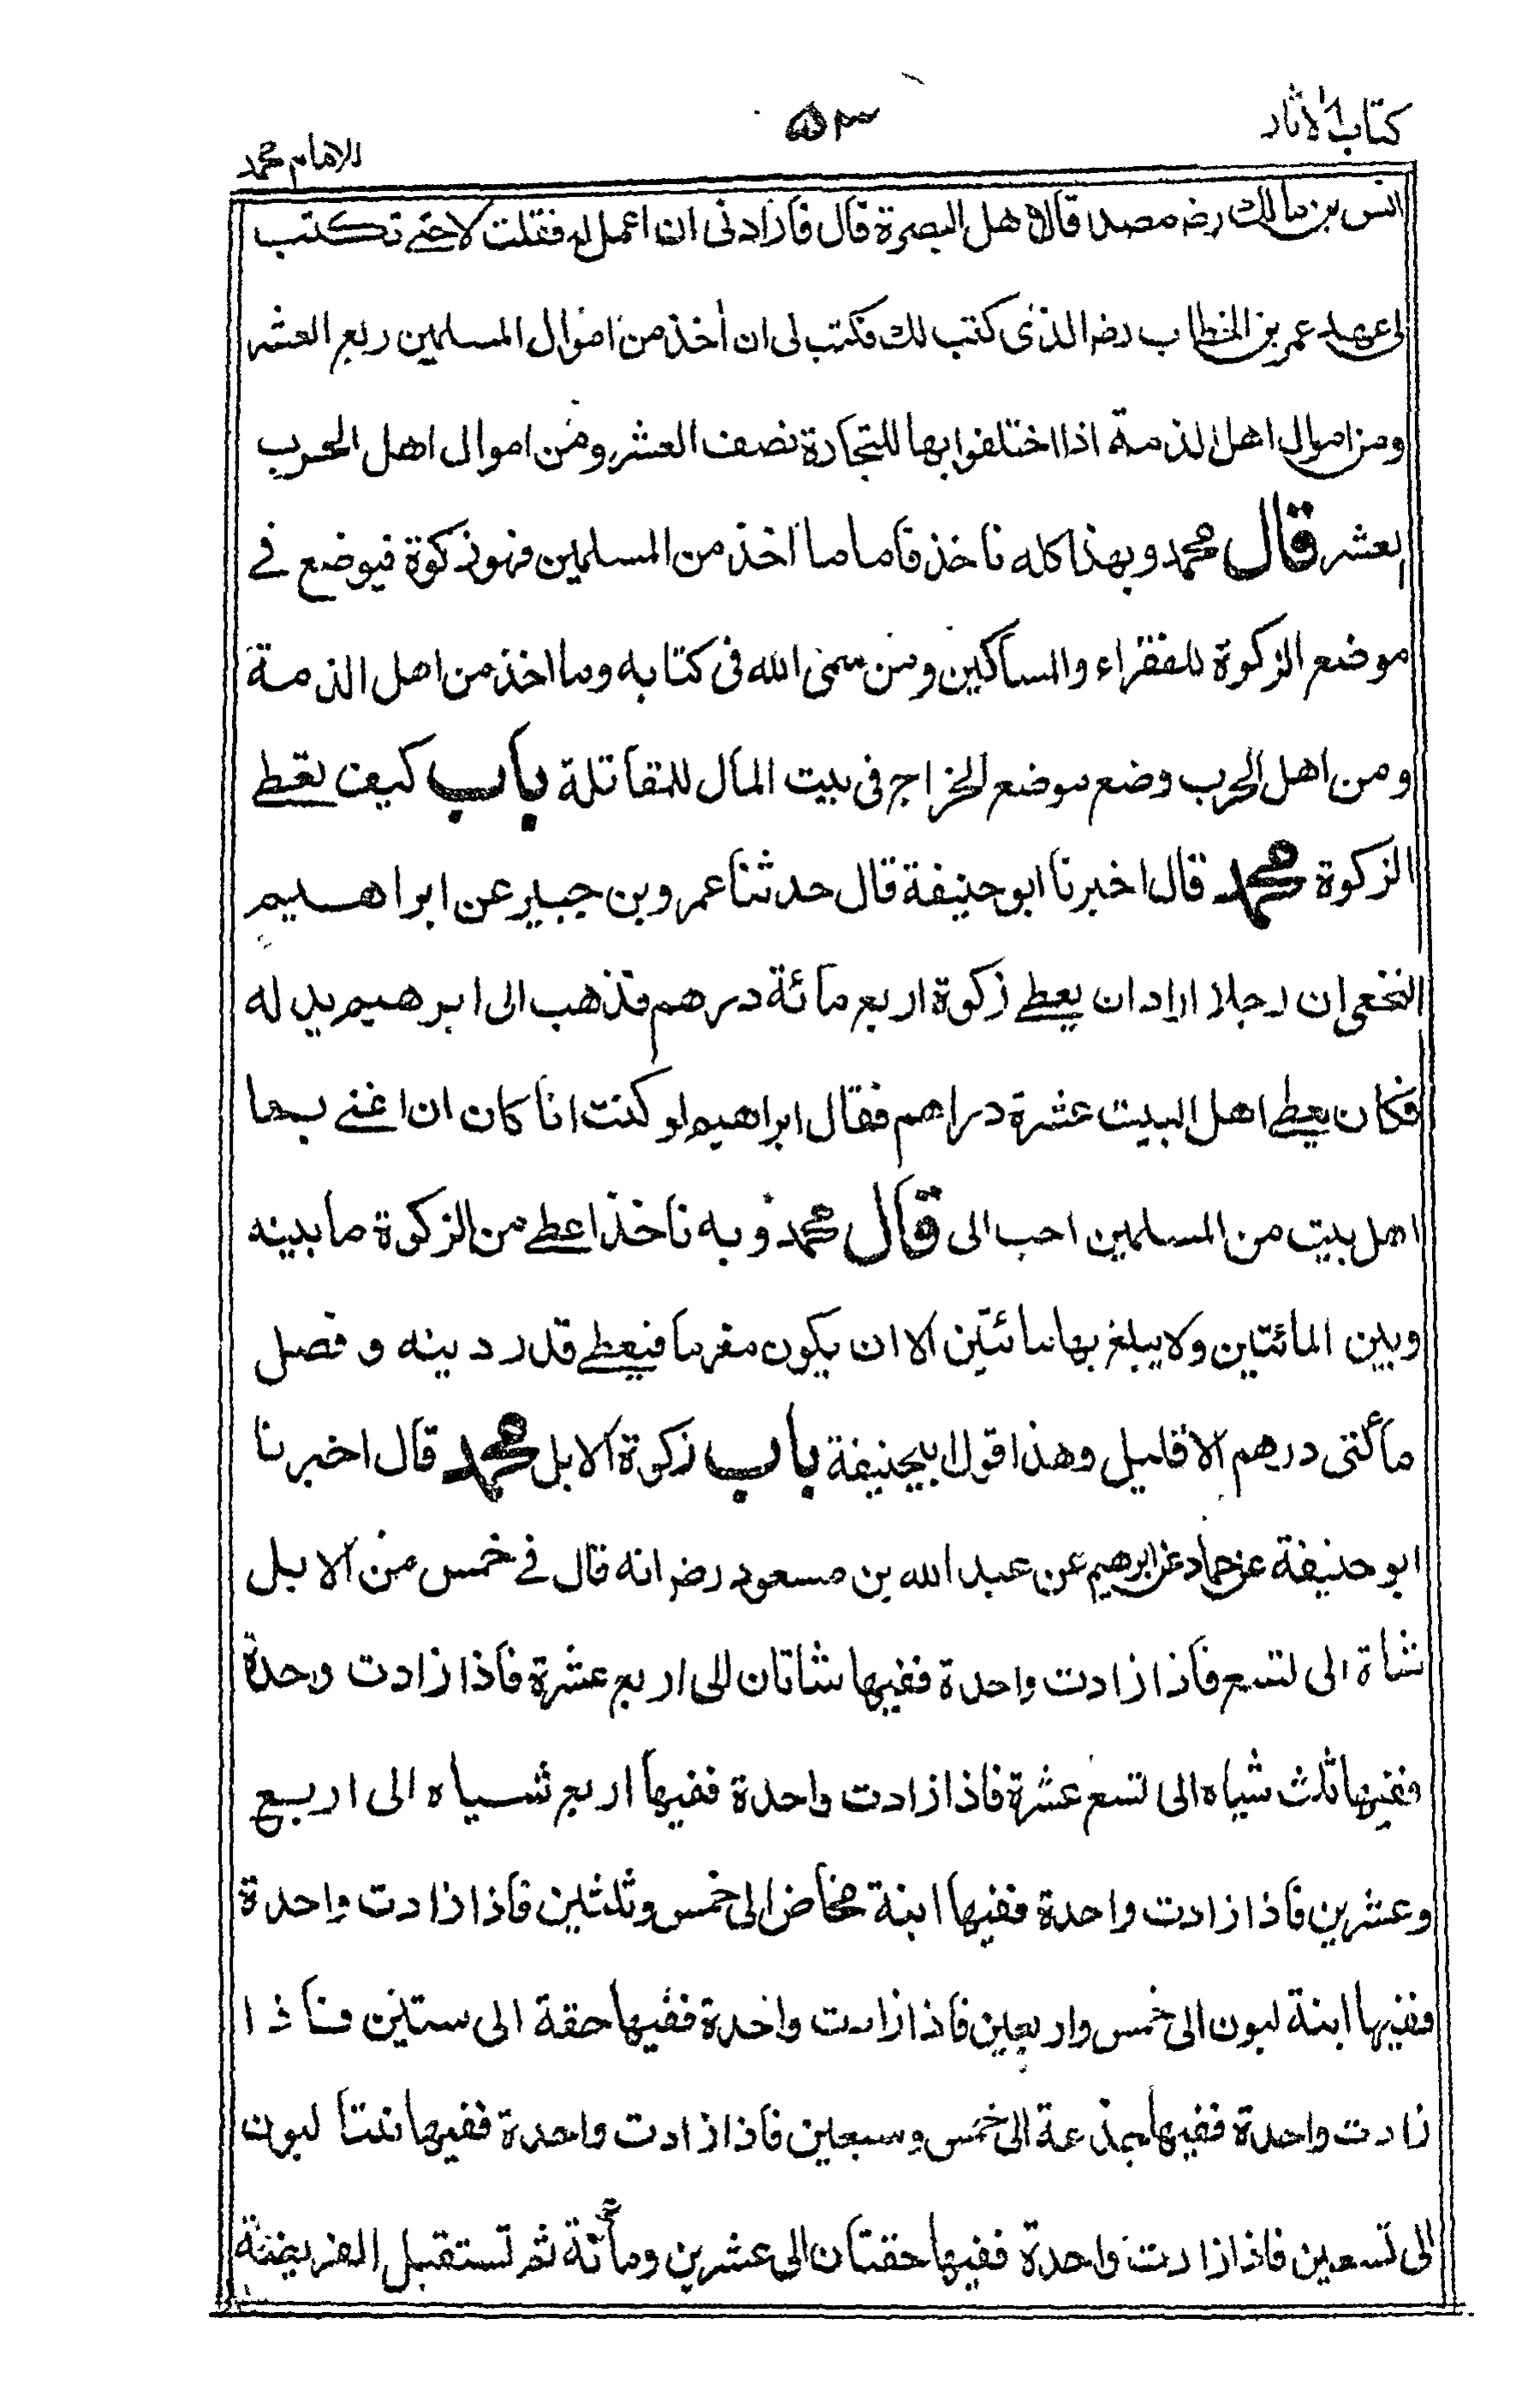 كتاب الاثار
۵۳
للامام محمد
انس بن مالك رضه مصدقا لاهل البصرة قال فارادنى ان اعمل له فقلت لا حتے تكتب
لى عهد عمر بن الخطاب رضه الذى كتب لك فكتب لى ان أخذ من اموال المسلمين ربع العشر
ومن اموال اهل الذمة اذا اختلفوا بها للتجارة نصف العشر ومن اموال اهل الحرب
العشر قال محمد وبهذا كله ناخذ فاما ما اخذ من المسلمين فهو زكوة فيوضع فے
موضع الزكوة للفقراء والمساكين ومن سمى الله فى كتابه وما اخذ من اهل الذمة
ومن اهل الحرب وضع موضع الخراج فى بيت المال للمقاتلة باب كيف يعطے
الزكوة محمد قال اخبرنا ابو حنيفة قال حدثنا عمرو بن جبير عن ابراهيم
النخعى ان رجلا اراد ان يعطے زكوة اربع مائة درهم فذهب الى ابرهيم يدله
فكان يعطے اهل البيت عشرة دراهم فقال ابراهيم لو كنت انا كان ان اغنے بها
اهل بيت من المسلمين احب الى قال محمد وبه ناخذ اعطے من الزكوة ما بينه
وبين المائتين ولا يبلغ بها مائتين الا ان يكون مغرما فيعطے قدر دينه و فضل
مأئتى درهم الا قليل وهذا قول ابيحنيفة باب زكوة الابل محمد قال اخبرنا
ابو حنيفة عن حماد عن ابرهيم عن عبد الله بن مسعود رضه انه قال فے خمس من الابل
شاة الى تسع فاذا زادت واحدة ففيها شاتان الى اربع عشرة فاذا زادت وحدة
ففيها ثلث شياه الى تسع عشرة فاذا زادت واحدة ففيها اربع شياه الى اربع
وعشرين فاذا زادت واحدة ففيها ابنة مخاض الى خمس وثلثين فاذا زادت واحدة
ففيها ابنة لبون الى خمس واربعين فاذا زادت واحدة ففيها حقة الى ستين فاذا
زادت واحدة ففيها جذعة الى خمس وسبعين فاذا زادت واحدة ففيها بنتا لبون
الى تسعين فاذا زادت واحدة ففيها حقتان الى عشرين ومائة ثم تستقبل الفريضة